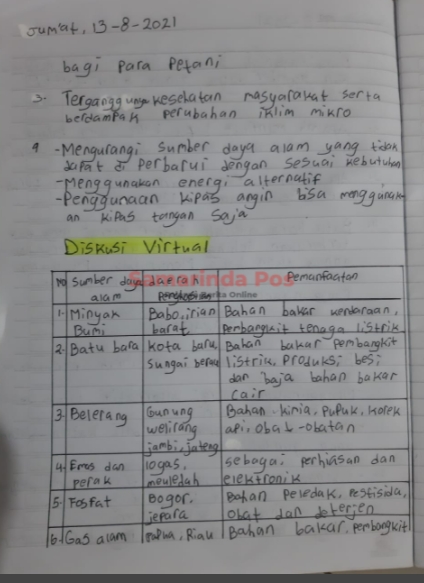 Jum'at, 13-8-2021
bagi para petani
3. Terganggunya kesehatan masyarakat serta
berdampak perubahan iklim mikro
4 -Mengurangi sumber daya alam yang tidak
dapat di perbarui dengan sesuai kebutuhan
-Menggunakan energi alternatif
-Penggunaan kipas angin bisa menggunak-
an kipas tangan saja
Diskusi Virtual
Samarinda Pos
Berita Online
No Sumber daya alam daerah Pemanfaatan
1. Minyak Bumi Babo, irian barat Bahan bakar kendaraan, Pembangkit tenaga listrik
2. Batu bara kota baru, sungai berau Bahan bakar pembangkit listrik, produksi besi dan baja bahan bakar cair
3. Belerang Gunung welirang jambi, jateng Bahan kimia, pupuk, korek api, obat-obatan
4. Emas dan perak logas, meuleboh sebagai perhiasan dan elektronik
5. Fosfat Bogor, jepara Bahan Peledak, Pestisida, obat dan deterjen
6. Gas alam Riau Bahan bakar, pembangkit